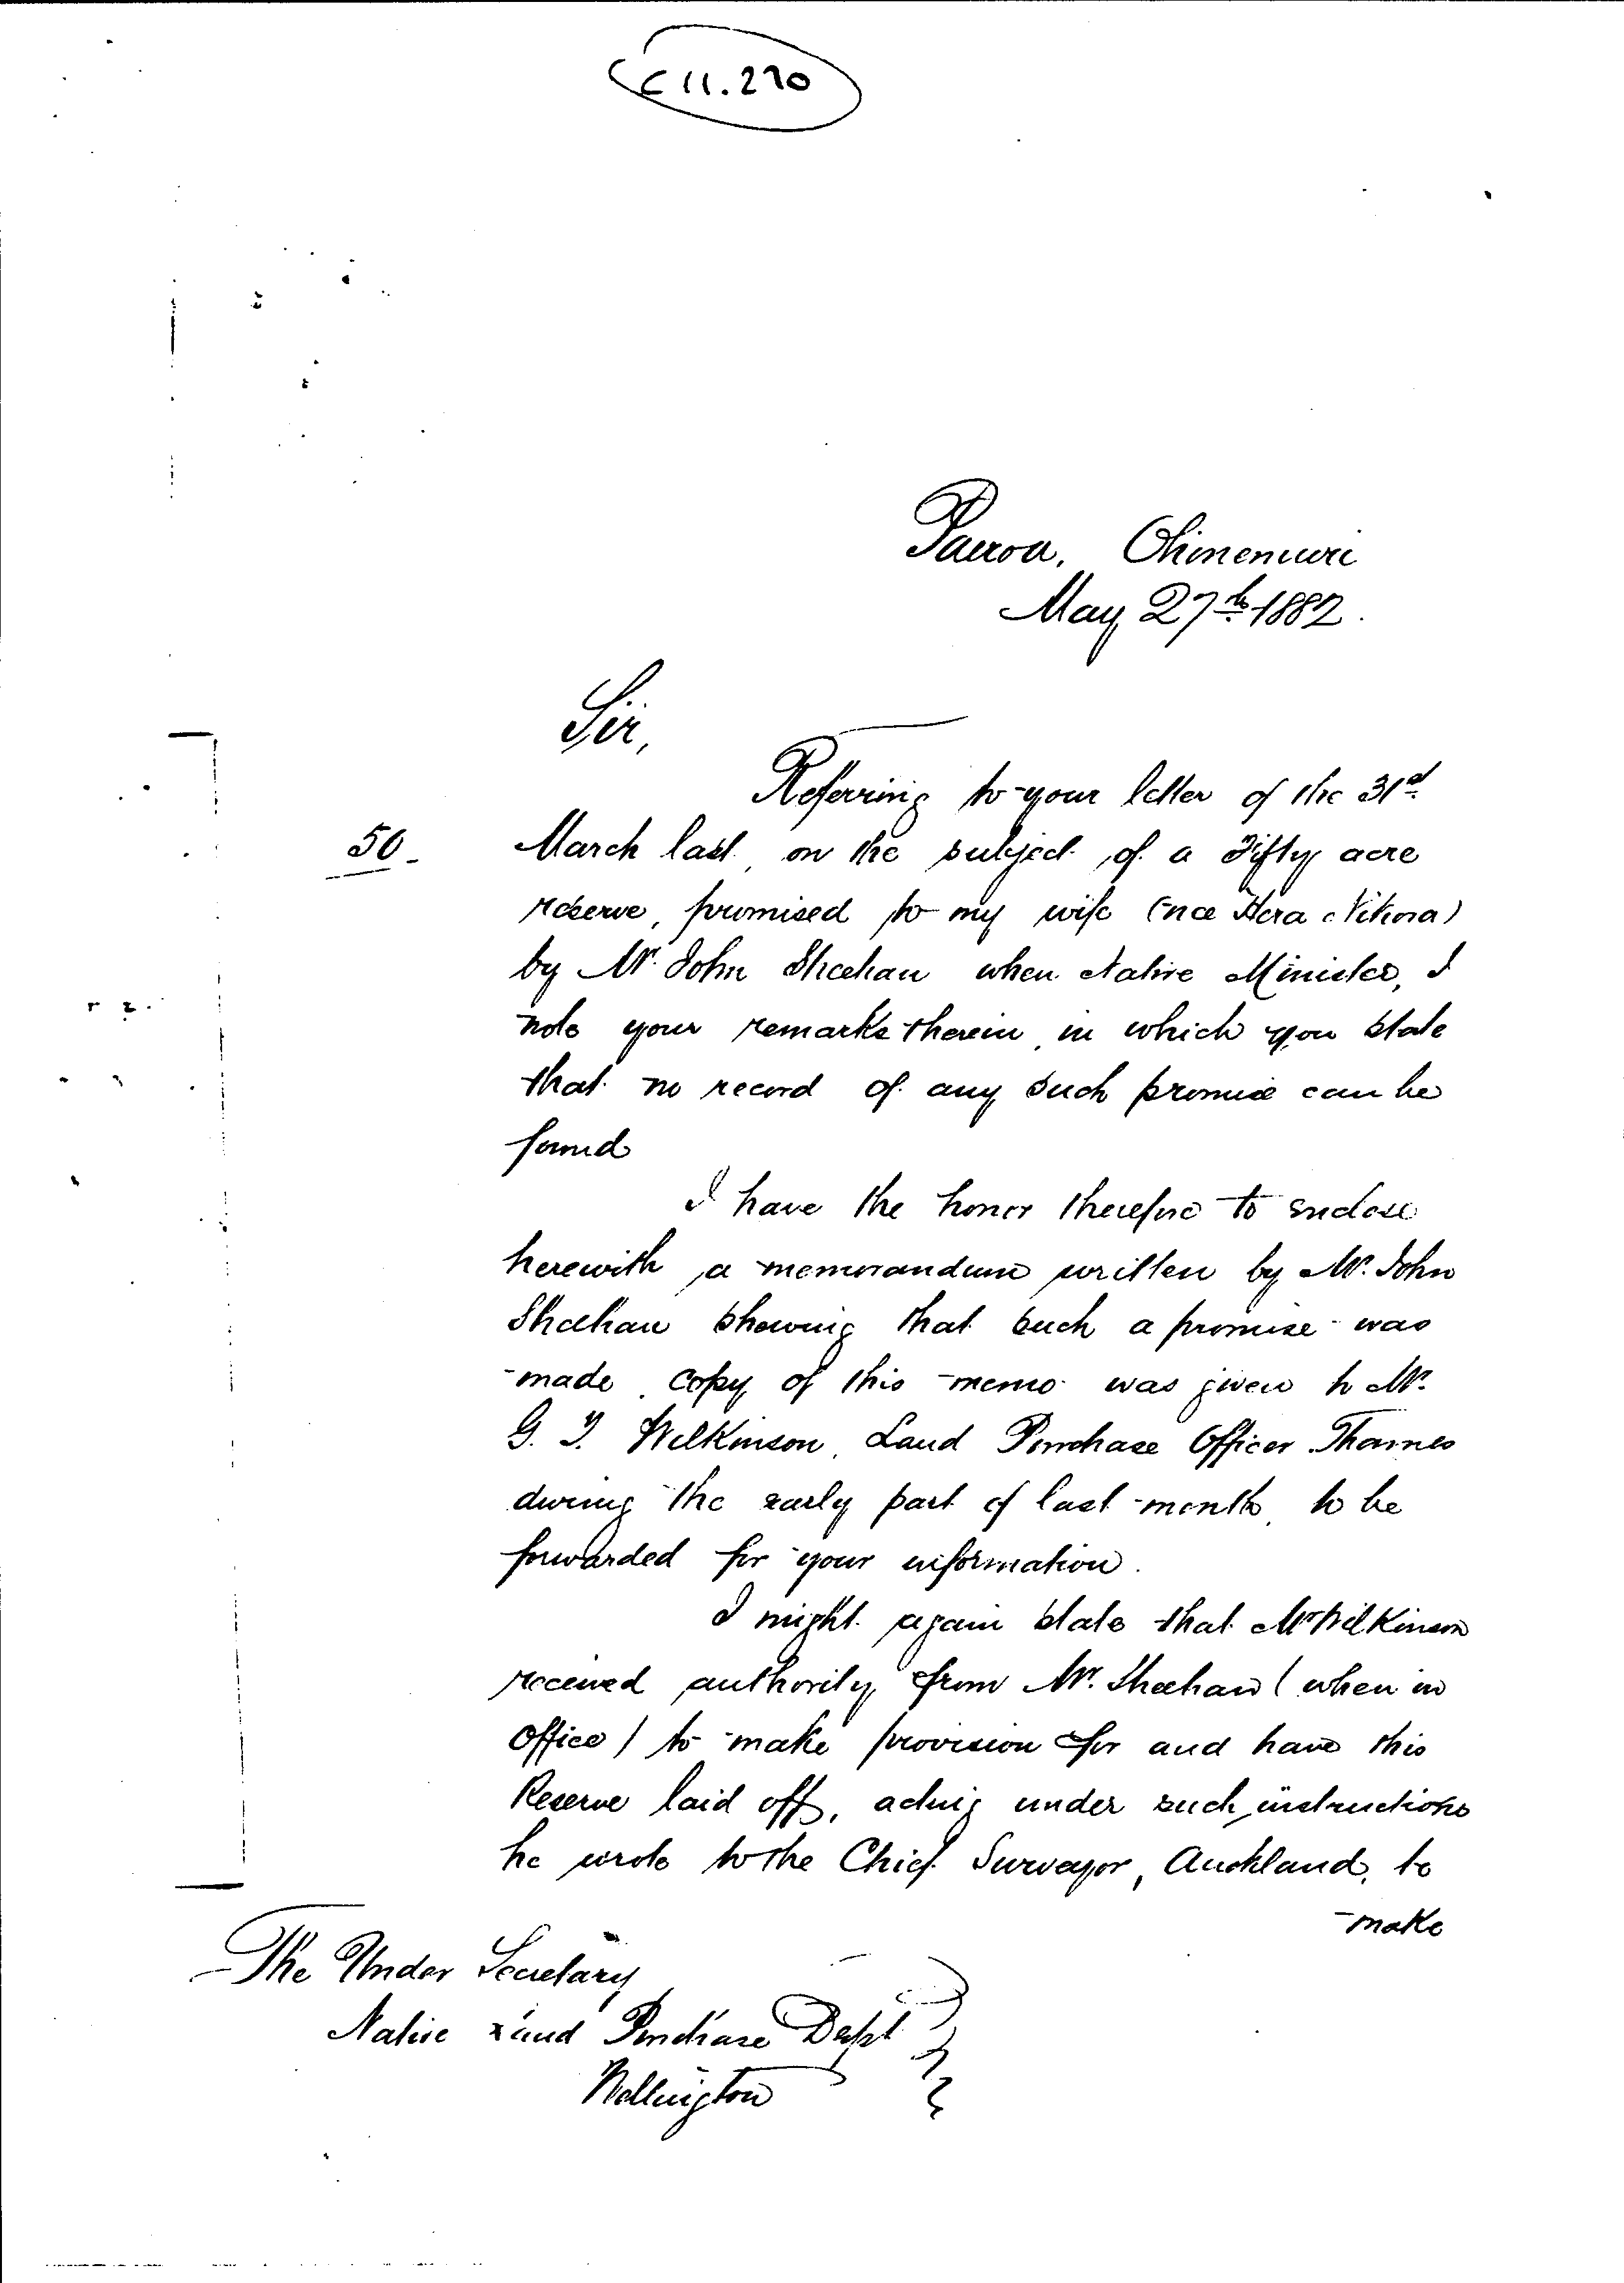 C 11.270
Paeroa, Ohinemuri
May 27th 1882.
Sir,
Referring to your letter of the 31st
50
March last on the subject of a Fifty acre
reserve, promised to my wife (nee Hera Nikora)
by Mr. John Sheehan when Native Minister, I
note your remarks therein in which you state
that no record of any such promise can be
found
I have the honor therefore to enclose
herewith a memorandum written by Mr. John
Sheehan showing that such a promise was
made copy of this memo was given to Mr.
G. T. Wilkinson Land Purchase Officer Thames
during the early part of last month to be
forwarded for your information.
I might again state that Mr Wilkinson
received authority from Mr. Sheehan (when in
Office) to make provision for and have this
Reserve laid off, acting under such instructions
he wrote to the Chief Surveyor, Auckland, to
make
The Under Secretary
Native Land Purchase Dept
Wellington